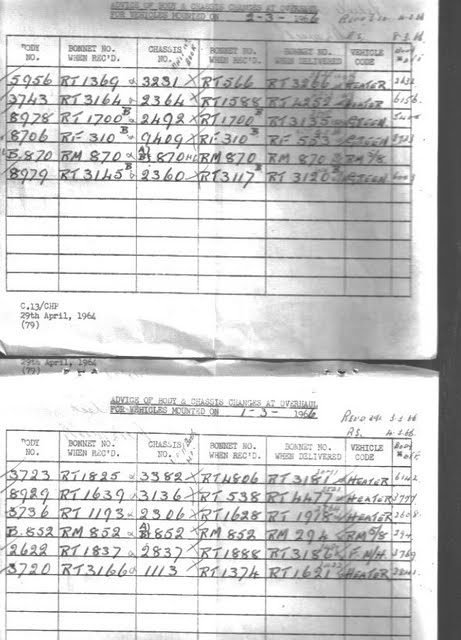 ADVICE OF BODY & CHASSIS CHANGES AT OVERHAUL
FOR VEHICLES MOUNTED ON 2-3-1966
8-3-66
BODY NO. BONNET NO. WHEN REC'D. CHASSIS NO. BONNET NO. WHEN REC'D. BONNET NO. WHEN DELIVERED VEHICLE CODE Body
5956 RT1369 3231 RT566 RT3266 HEATER
3743 RT3164 2364 RT1588 RT4252 HEATER 6156
8978 RT1700 B 2492 RT1700 B RT3135 GREEN
8706 RF310 B 9409 RF310 B RF 553
B.870 RM 870 870 RM870 RM 870 RM 5/8
8979 RT3145 B 2360 RT3117 B RT 3120 GREEN
C.13/CHP
29th April, 1964
(79)
29th April, 1964
(79)
ADVICE OF BODY & CHASSIS CHANGES AT OVERHAUL
FOR VEHICLES MOUNTED ON 1-3-1966
BODY NO. BONNET NO. WHEN REC'D. CHASSIS NO. BONNET NO. WHEN REC'D. BONNET NO. WHEN DELIVERED VEHICLE CODE Body
3723 RT1825 3382 RT4806 RT3181 HEATER 6142
8929 RT1639 3136 RT538 RT4477 HEATER
3736 RT1193 2306 RT1628 RT1918 HEATER
B.852 RM 852 852 RM 852 RM 294 RM 5/8 294
2622 RT1837 2837 RT1888 RT3186 F.N/H
3720 RT3166 1113 RT1374 RT1621 HEATER